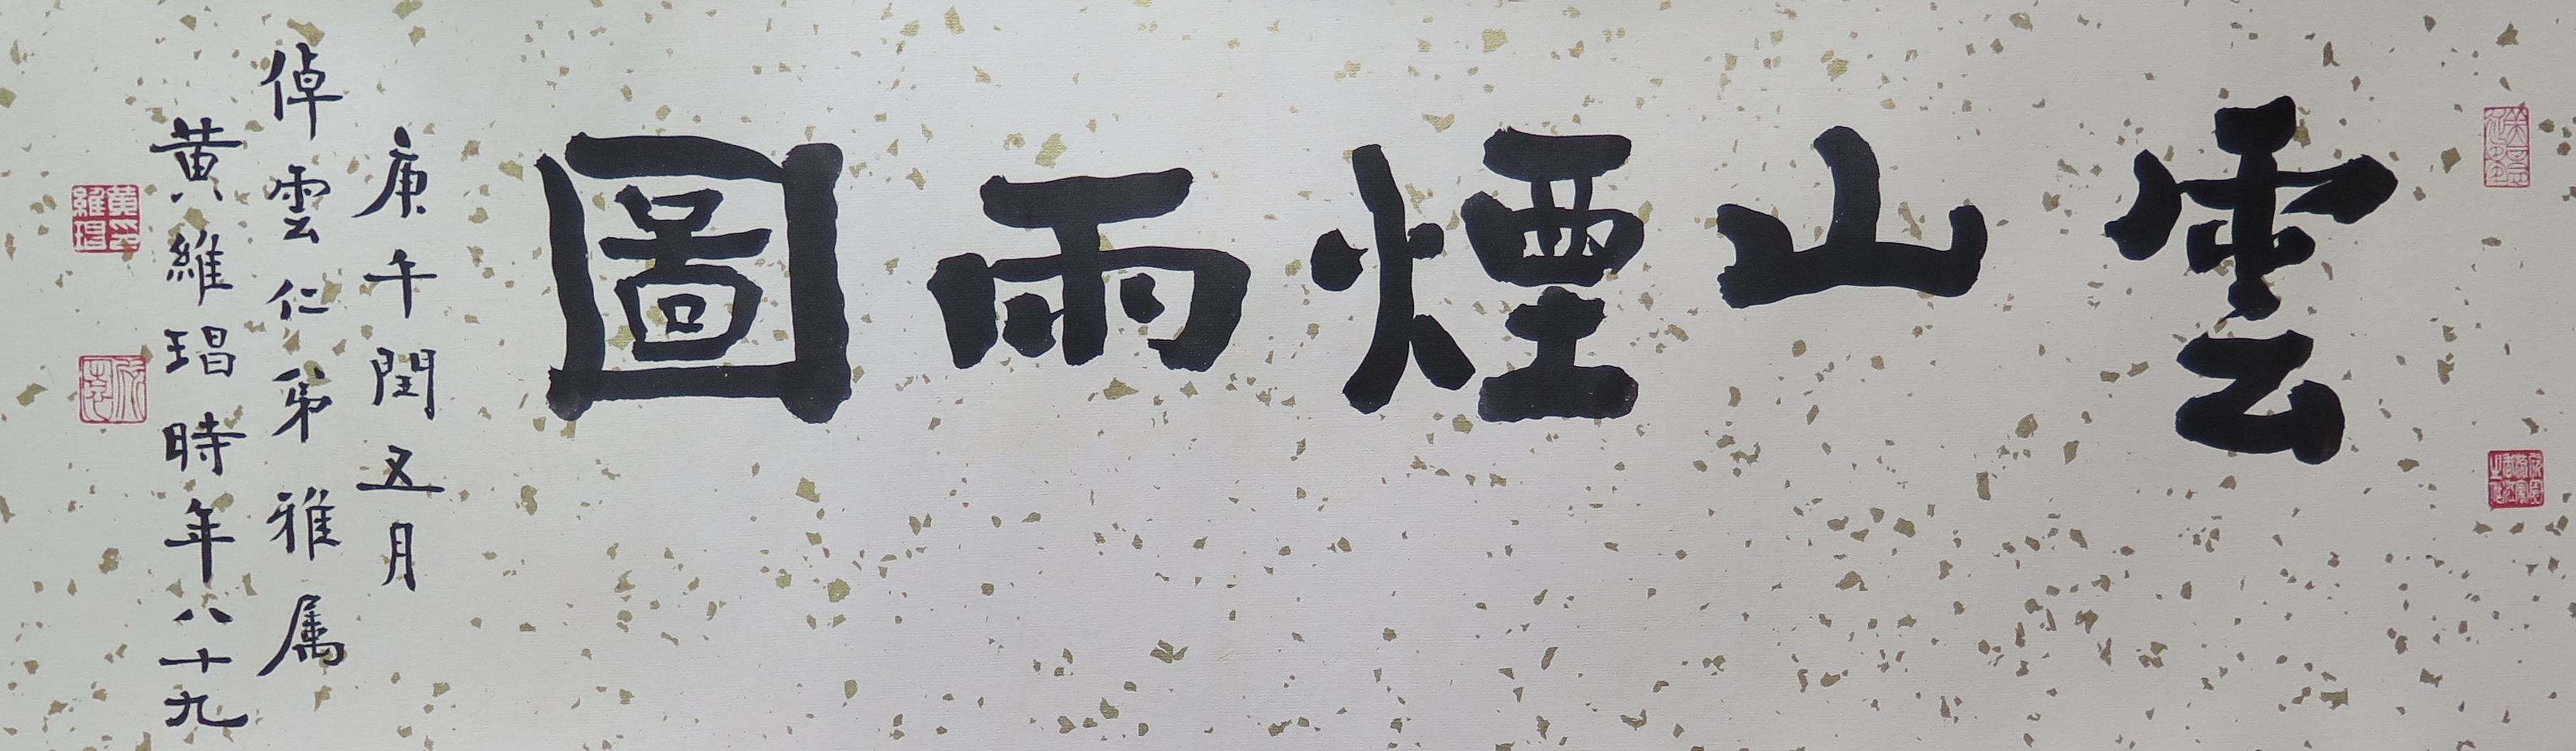 雲山煙雨圖
庚午閏五月
倬雲仁弟雅屬
黄維琩時年八十九
黄維琩印